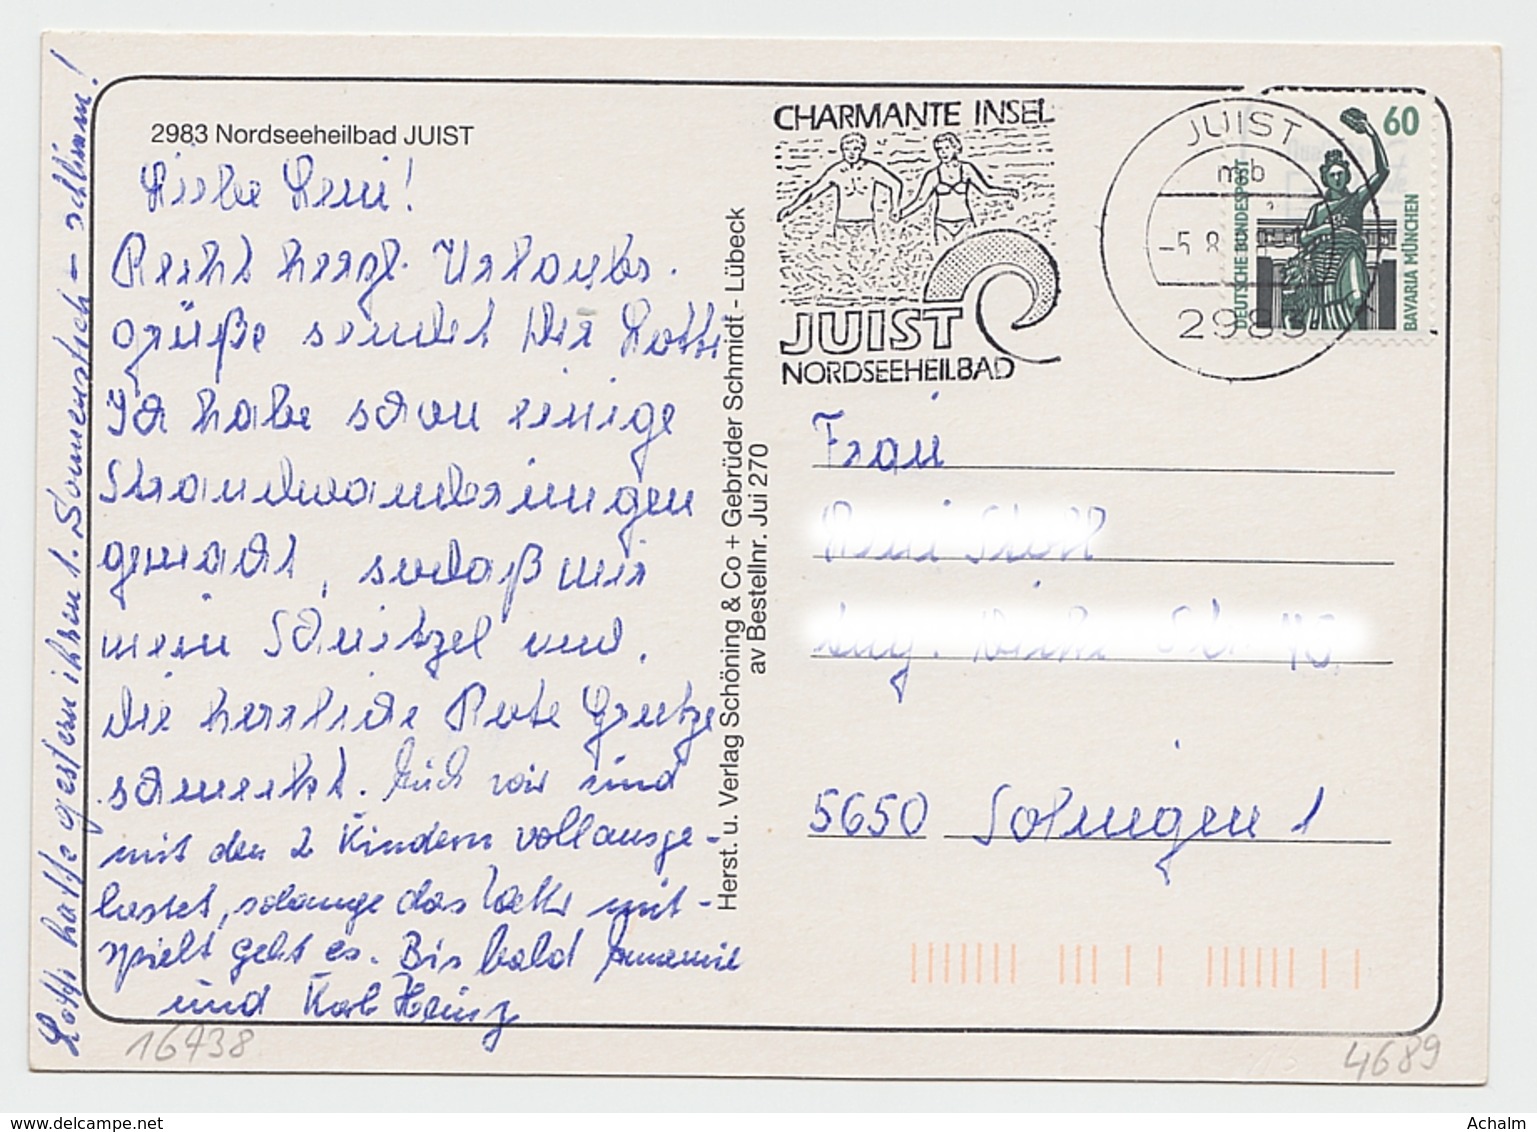 2983 Nordseeheilbad JUIST
Liebe Leni!
Recht herzl. Urlaubs-
grüße sendet Dir Lotti
Ich habe schon einige
Strandwanderungen
gemacht, sodaß mir
mein Schnitzel und
die herrliche Rote Grütze
schmeckt. Auch wir sind
mit den 2 Kindern vollausge-
lastet, solange das Wetter mit-
spielt geht es. Bis bald Annemie
und Karl Heinz
Lotti hatte gestern ihren 1. Sonnenstich - schlimm!
Herst. u. Verlag Schöning & Co + Gebrüder Schmidt - Lübeck
av Bestellnr. Jui 270
CHARMANTE INSEL
JUIST
NORDSEEHEILBAD
JUIST
mb
-5.8.
2983
60
DEUTSCHE BUNDESPOST
BAVARIA MÜNCHEN
Frau
5650 Solingen 1
16738
4689
delcampe.net
Achalm